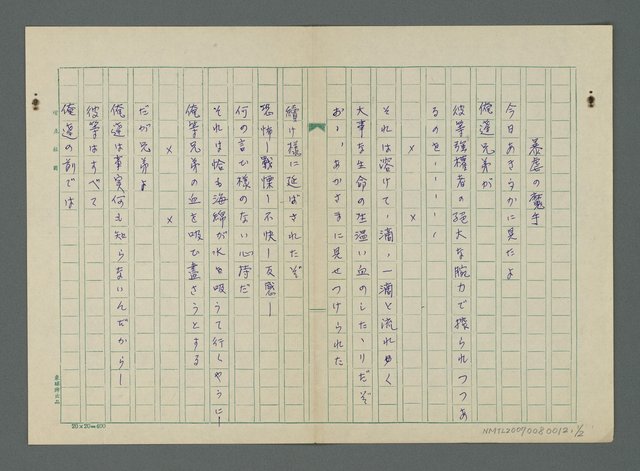 暴虐の魔手
今日あきらかに見たよ
俺達兄弟が
彼等強権者の絶大な腕力で搾られつつあ
るのを・・・・・
× ×
それは溶けて、滴、一滴と流れゆく
大事な生命の生温い血のしたゝりだぞ
おゝ、あかさまに見せつけられた
續け様に延ばされたぞ
恐怖ー戰慄ー不快ー反感ー
何の言ひ様のない心持だ
それは恰も海綿が水を吸うて行くやうにー
俺等兄弟の血を吸ひ盡さうとする
× ×
だが兄弟よ
俺達は事実何も知らないんだからー
彼等はすべて
俺達の前では
20×20=400
NMTL20070080012,1/2